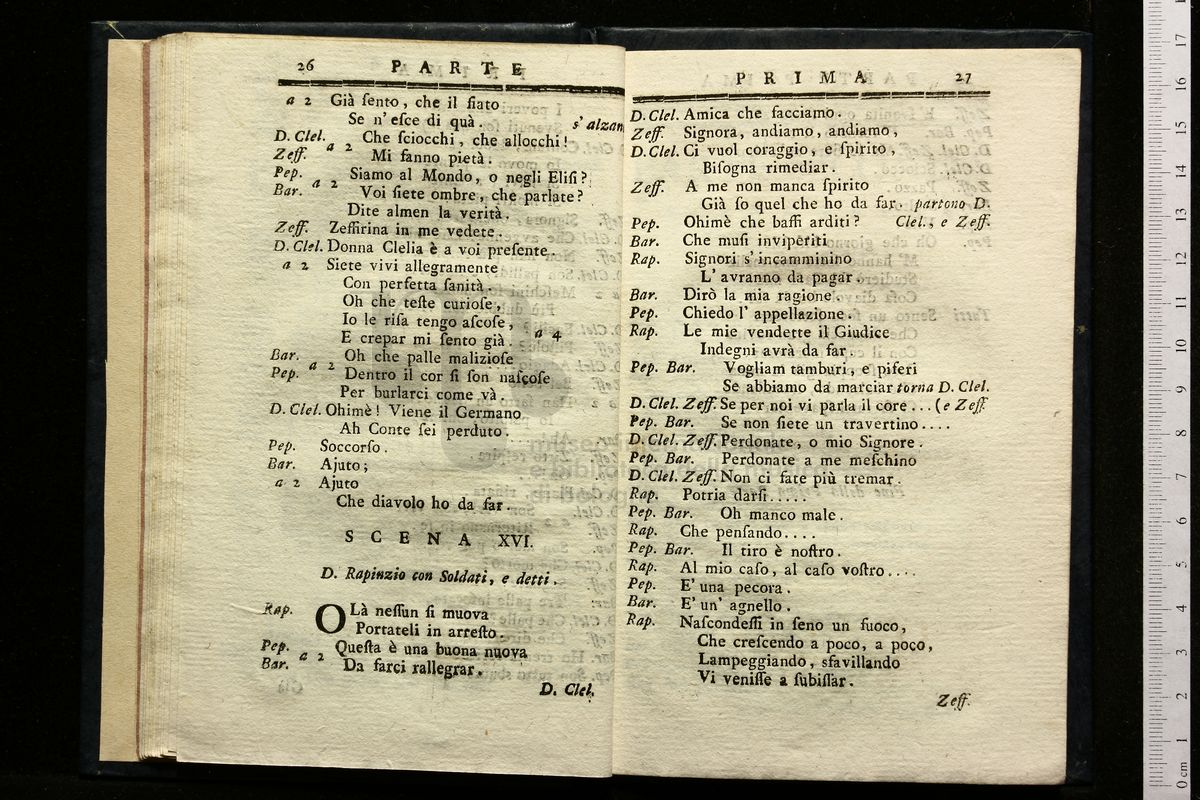 26 PARTE
a 2 Già ſento, che il fiato
Se n' eſce di quà. s' alzan
D. Clel. Che ſciocchi, che allocchi!
Zeff. a 2 Mi fanno pietà.
Pep. Siamo al Mondo, o negli Eliſi?
Bar. a 2 Voi ſiete ombre, che parlate?
Dite almen la verità.
Zeff. Zeffirina in me vedete.
D. Clel. Donna Clelia è a voi preſente
a 2 Siete vivi allegramente
Con perfetta ſanità.
Oh che teſte curioſe,
Io le riſa tengo aſcoſe,
E crepar mi ſento già. a 4
Bar. Oh che palle malizioſe
Pep. a 2 Dentro il cor ſi ſon naſcoſe
Per burlarci come và.
D. Clel. Ohimè! Viene il Germano
Ah Conte ſei perduto.
Pep. Soccorſo.
Bar. Ajuto;
a 2 Ajuto
Che diavolo ho da far.
SCENA XVI.
D. Rapinzio con Soldati, e detti.
Rap. OLà neſſun ſi muova
Portateli in arreſto.
Pep. Queſta è una buona nuova
Bar. a 2 Da farci rallegrar.
D. Clel.
PRIMA 27
D. Clel. Amica che facciamo.
Zeff. Signora, andiamo, andiamo,
D. Clel. Ci vuol coraggio, e ſpirito,
Biſogna rimediar.
Zeff. A me non manca ſpirito
Già ſo quel che ho da far. partono D.
Pep. Ohimè che baffi arditi? Clel., e Zeff.
Bar. Che muſi inviperiti
Rap. Signori s' incamminino
L' avranno da pagar.
Bar. Dirò la mia ragione.
Pep. Chiedo l' appellazione.
Rap. Le mie vendette il Giudice
Indegni avrà da far.
Pep. Bar. Vogliam tamburi, e piferi
Se abbiamo da marciar torna D. Clel.
D. Clel. Zeff. Se per noi vi parla il core... (e Zeff.
Pep. Bar. Se non ſiete un travertino....
D. Clel. Zeff. Perdonate, o mio Signore.
Pep. Bar. Perdonate a me meſchino
D. Clel. Zeff. Non ci fate più tremar.
Rap. Potria darſi.....
Pep. Bar. Oh manco male.
Rap. Che penſando....
Pep. Bar. Il tiro è noſtro.
Rap. Al mio caſo, al caſo voſtro....
Pep. E' una pecora.
Bar. E' un' agnello.
Rap. Naſcondeſſi in ſeno un fuoco,
Che creſcendo a poco, a poco,
Lampeggiando, sfavillando
Vi veniſſe a ſubiſſar.
Zeff.
0 cm 1 2 3 4 5 6 7 8 9 10 11 12 13 14 15 16 17